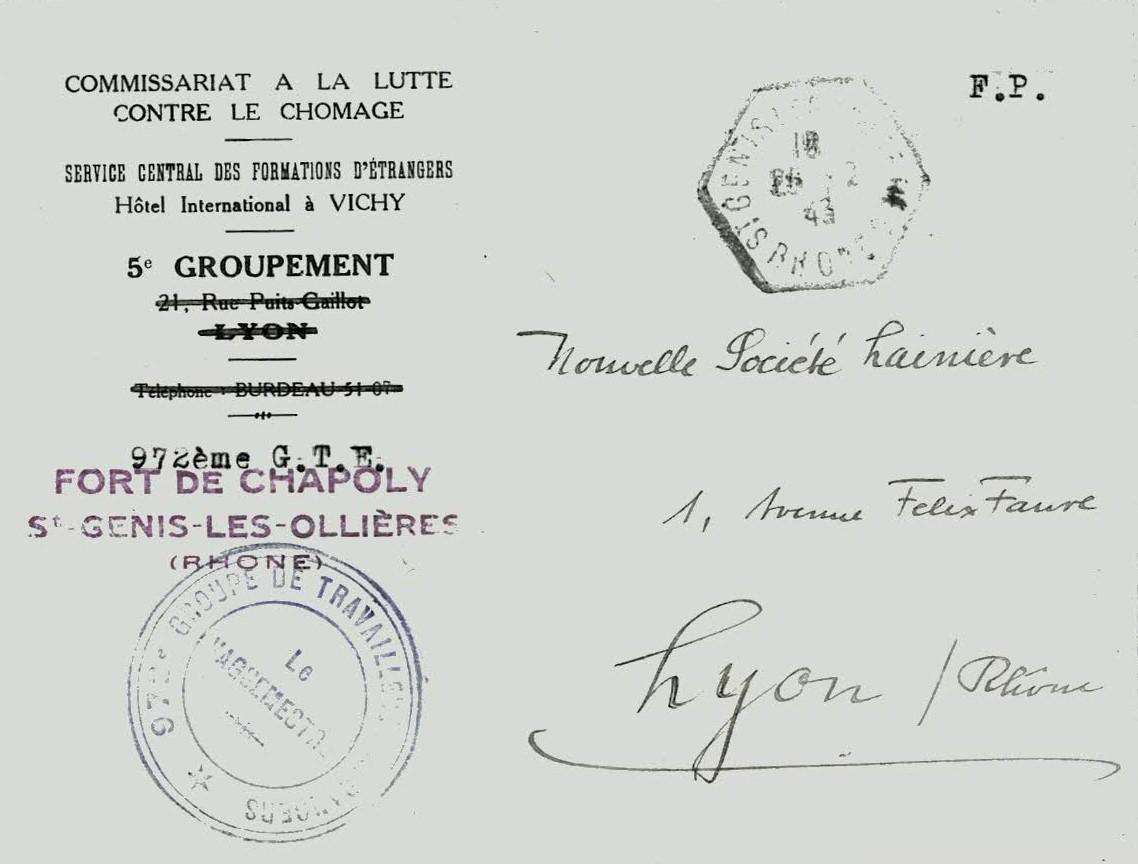 COMMISSARIAT A LA LUTTE
CONTRE LE CHOMAGE
SERVICE CENTRAL DES FORMATIONS D'ÉTRANGERS
Hôtel International à VICHY
5e GROUPEMENT
21, Rue Puits-Gaillot
LYON
Téléphone : BURDEAU 51-07
972ème G.T.E.
FORT DE CHAPOLY
St-GENIS-LES-OLLIÈRES
(RHONE)
972e GROUPE DE
Le
F.P.
St GENIS
RHONE
43
Nouvelle Société Lainière
1, Avenue Felix Faure
Lyon / Rhône